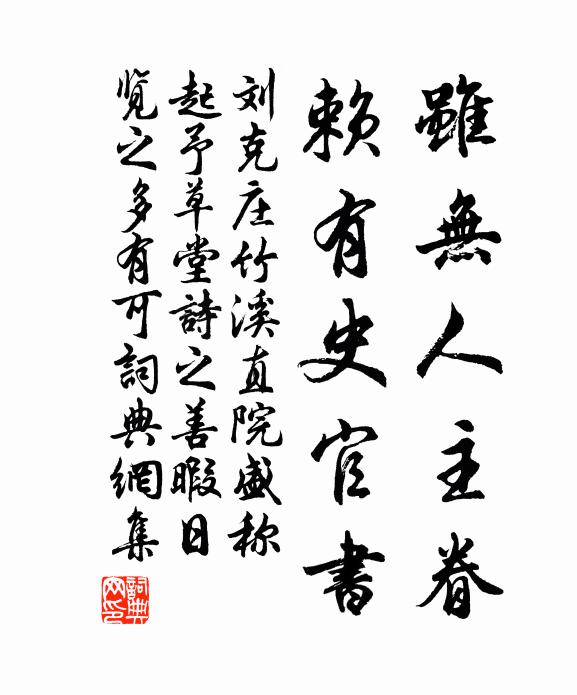 雖無人主眷
賴有史官書
刘克庄竹溪直院盛称
起予草堂詩之善暇日
览之多有可詞典網集
詞典
网印